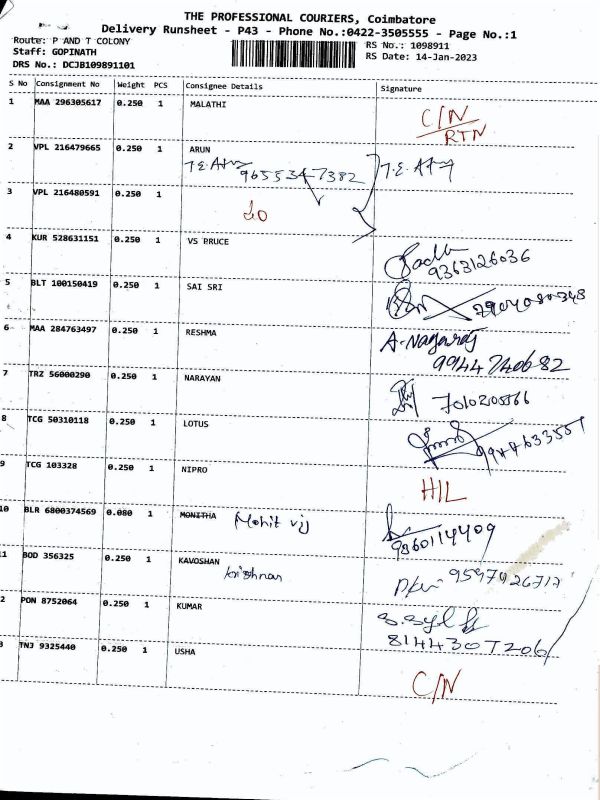 THE PROFESSIONAL COURIERS, Coimbatore
Delivery Runsheet - P43 - Phone No.:0422-3505555 - Page No.:1
Route: P AND T COLONY
Staff: GOPINATH
DRS No.: DCJB109891101
RS No.: 1098911
RS Date: 14-Jan-2023
S No Consignment No Weight PCS Consignee Details Signature
1 MAA 296305617 0.250 1 MALATHI C/N
RTN
2 VPL 216479665 0.250 1 ARUN
9655347382
3 VPL 216480591 0.250 1
4 KUR 528631151 0.250 1 VS PRUCE
9363126036
5 BLT 100150419 0.250 1 SAI SRI
6 MAA 284763497 0.250 1 RESHMA A. Nagaraj
9944740682
7 TRZ 56000290 0.250 1 NARAYAN
8 TCG 50310118 0.250 1 LOTUS
9 TCG 103328 0.250 1 NIPRO H/L
10 BLR 6800374569 0.080 1 MONITHA Mohit vij
9360114409
11 BOD 356325 0.250 1 KAVOSHAN
krishnan
2 PON 8752064 0.250 1 KUMAR
8144307206
3 TNJ 9325440 0.250 1 USHA
C/N